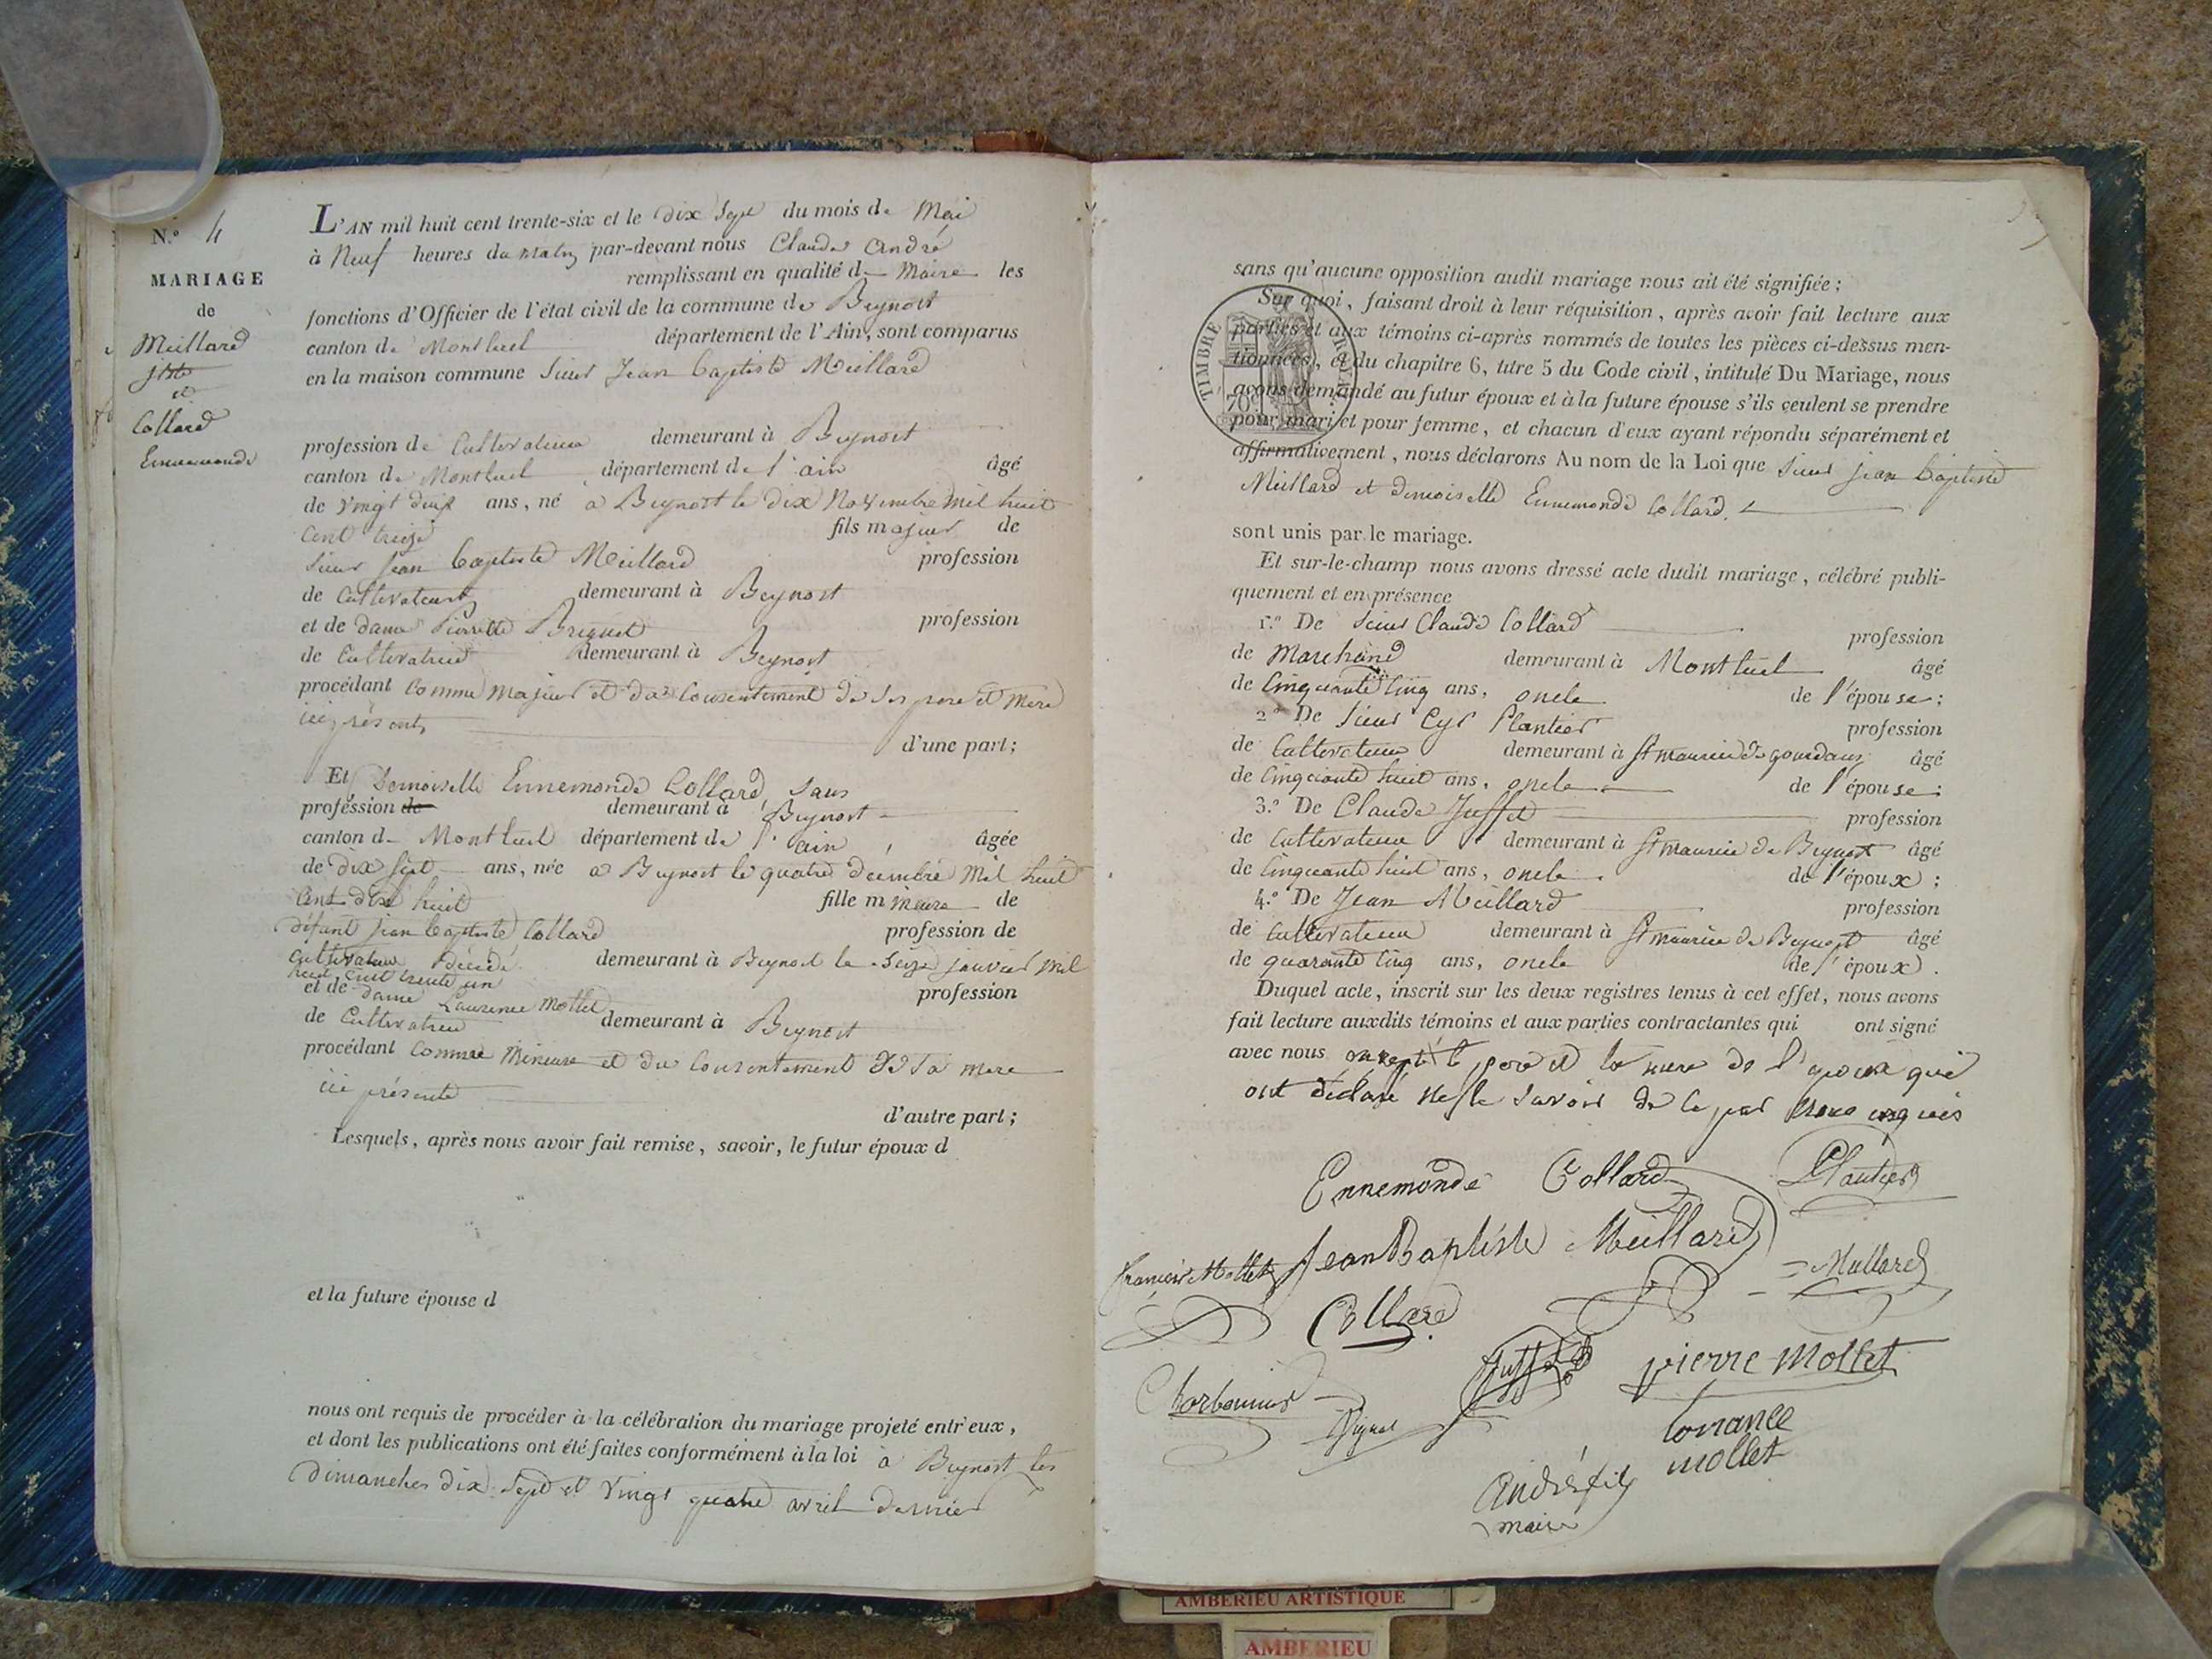 N.º 4
MARIAGE
de
Meillard
et
Collard
Ennemonde
L'AN mil huit cent trente-six et le dix Sept du mois de Mai
à Neuf heures du matin par-devant nous Claude André
remplissant en qualité de Maire les
fonctions d'Officier de l'état civil de la commune de Beynost
canton de Montluel département de l'Ain, sont comparus
en la maison commune Sieur Jean Baptiste Meillard
profession de Cultivateur demeurant à Beynost
canton de Montluel département de l'ain âgé
de vingt deux ans, né a Beynost le dix Novembre mil huit
cent treize fils majeur de
Sieur Jean Baptiste Meillard profession
de Cultivateur demeurant à Beynost
et de dame Pierrette profession
de Cultivatrice demeurant à Beynost
procédant comme majeur et du consentement de ses pere et mere
ici présents
d'une part ;
Et Demoiselle Ennemonde Collard, sans
profession de demeurant à Beynost
canton de Montluel département de l'ain, âgée
de dix sept ans, née a Beynost le quatre decembre mil huit
cent dix huit fille mineure de
défunt jean Baptiste Collard profession de
cultivateur décédé demeurant à Beynost le seize janvier mil
huit cent trente un
et de dame Laurence Mollet profession
de Cultivatrice demeurant à Beynost
procédant comme Mineure et du consentement de sa mere
ici présente
d'autre part ;
Lesquels, après nous avoir fait remise, savoir, le futur époux d
et la future épouse d
nous ont requis de procéder à la célébration du mariage projeté entr'eux,
et dont les publications ont été faites conformément à la loi à Beynost les
dimanches dix sept et vingt quatre avril dernier
sans qu'aucune opposition audit mariage nous ait été signifiée ;
Sur quoi, faisant droit à leur réquisition, après avoir fait lecture aux
parties et aux témoins ci-après nommés de toutes les pièces ci-dessus men-
tionnées, et du chapitre 6, titre 5 du Code civil, intitulé Du Mariage, nous
avons demandé au futur époux et à la future épouse s'ils veulent se prendre
pour mari et pour femme, et chacun d'eux ayant répondu séparément et
affirmativement, nous déclarons Au nom de la Loi que Sieur jean Baptiste
Meillard et demoiselle Ennemonde Collard.
sont unis par le mariage.
Et sur-le-champ nous avons dressé acte dudit mariage, célébré publi-
quement et en présence
1.º De Sieur Claude Collard profession
de Marchand demeurant à Montluel âgé
de Cinquante Cinq ans, oncle de l'épouse ;
2º De Sieur Cyr Plantier profession
de Cultivateur demeurant à St maurice de gourdans âgé
de Cinquante huit ans, oncle de l'épouse ;
3.º De Claude Juffet profession
de Cultivateur demeurant à St maurice de Beynost âgé
de Cinquante huit ans, oncle de l'époux ;
4.º De Jean Meillard profession
de Cultivateur demeurant à St maurice de Beynost âgé
de quarante Cinq ans, oncle de l'époux.
Duquel acte, inscrit sur les deux registres tenus à cet effet, nous avons
fait lecture auxdits témoins et aux parties contractantes qui ont signé
avec nous excepté le pere et la mere de l'époux qui
ont déclaré ne le savoir de ce par nous enquis
TIMBRE
70
Ennemonde Collard
Plantier
Jean Baptiste Meillard
françois Mollet
Meillard
Collard
Juffet
pierre mollet
Charbonnier
lorance
mollet
André fils
maire
AMBERIEU ARTISTIQUE
AMBERIEU